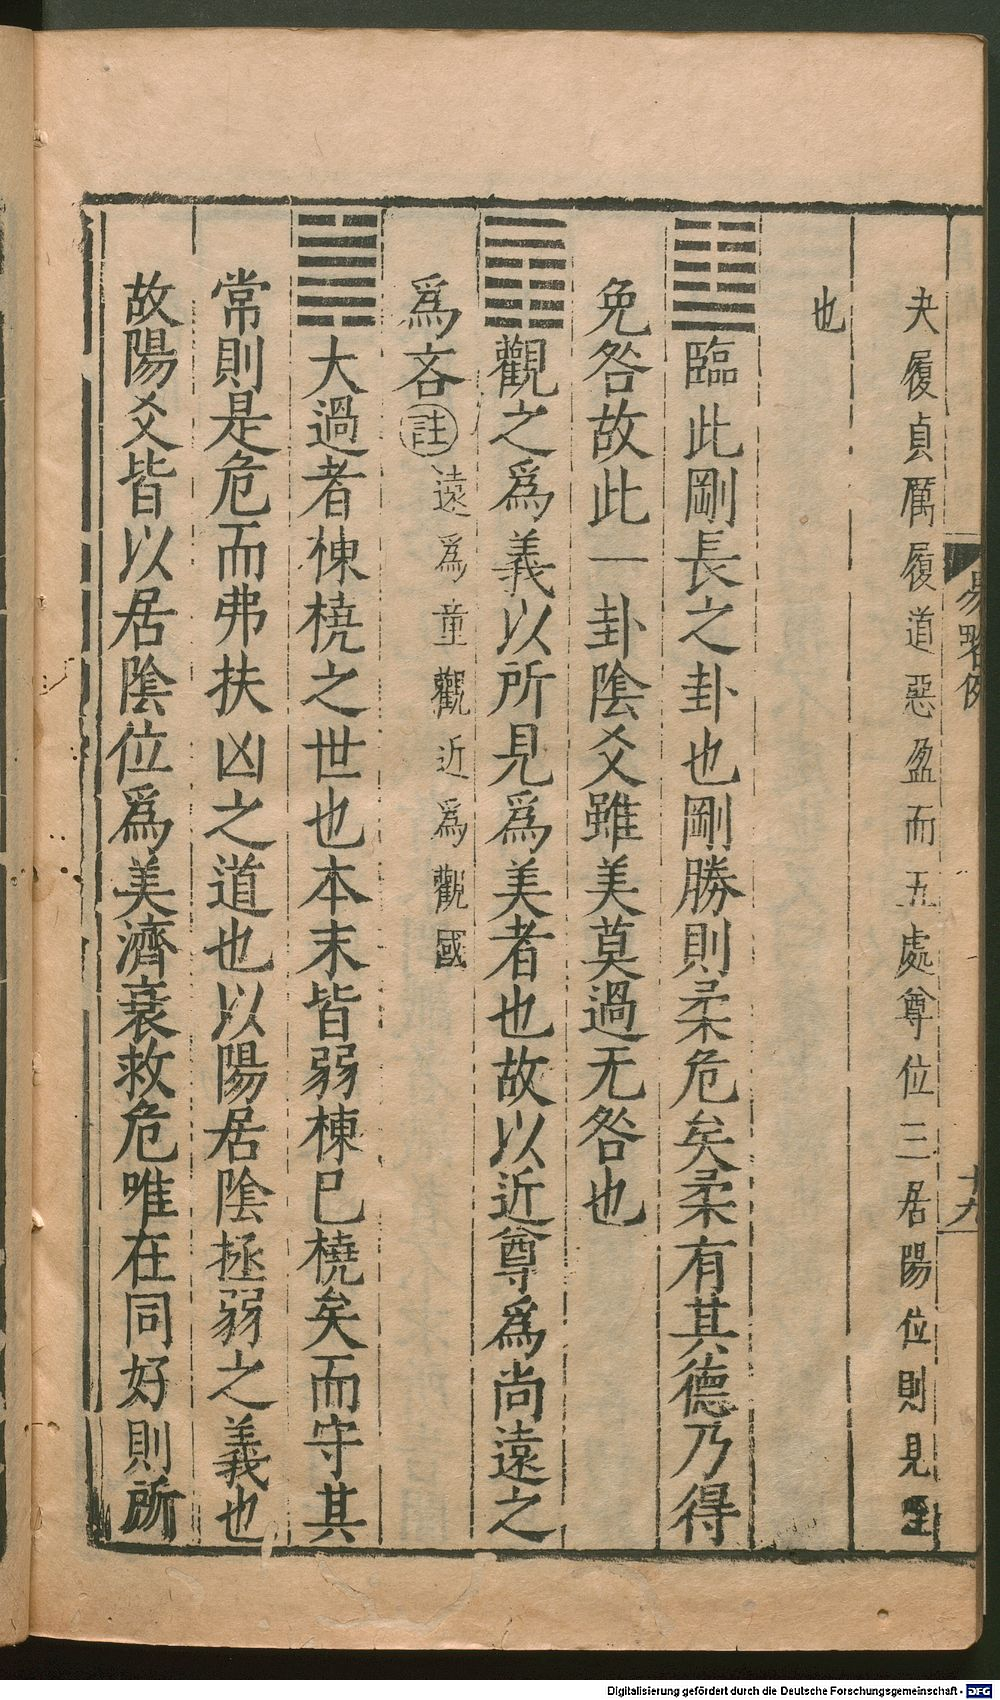 夬履貞厲履道惡盈而五處尊位三居陽位則見
也
䷒臨此剛長之卦也剛勝則柔危矣柔有其德乃得
免咎故此一卦陰爻雖美莫過无咎也
䷓觀之爲義以所見爲美者也故以近尊爲尚遠之
爲吝註遠爲童觀近爲觀國
䷛大過者棟橈之世也本末皆弱棟巳橈矣而守其
常則是危而弗扶凶之道也以陽居陰拯弱之義也
故陽爻皆以居陰位爲美濟衰救危唯在同好則所
易畧例
十九
Digitalisierung gefördert durch die Deutsche Forschungsgemeinschaft - DFG